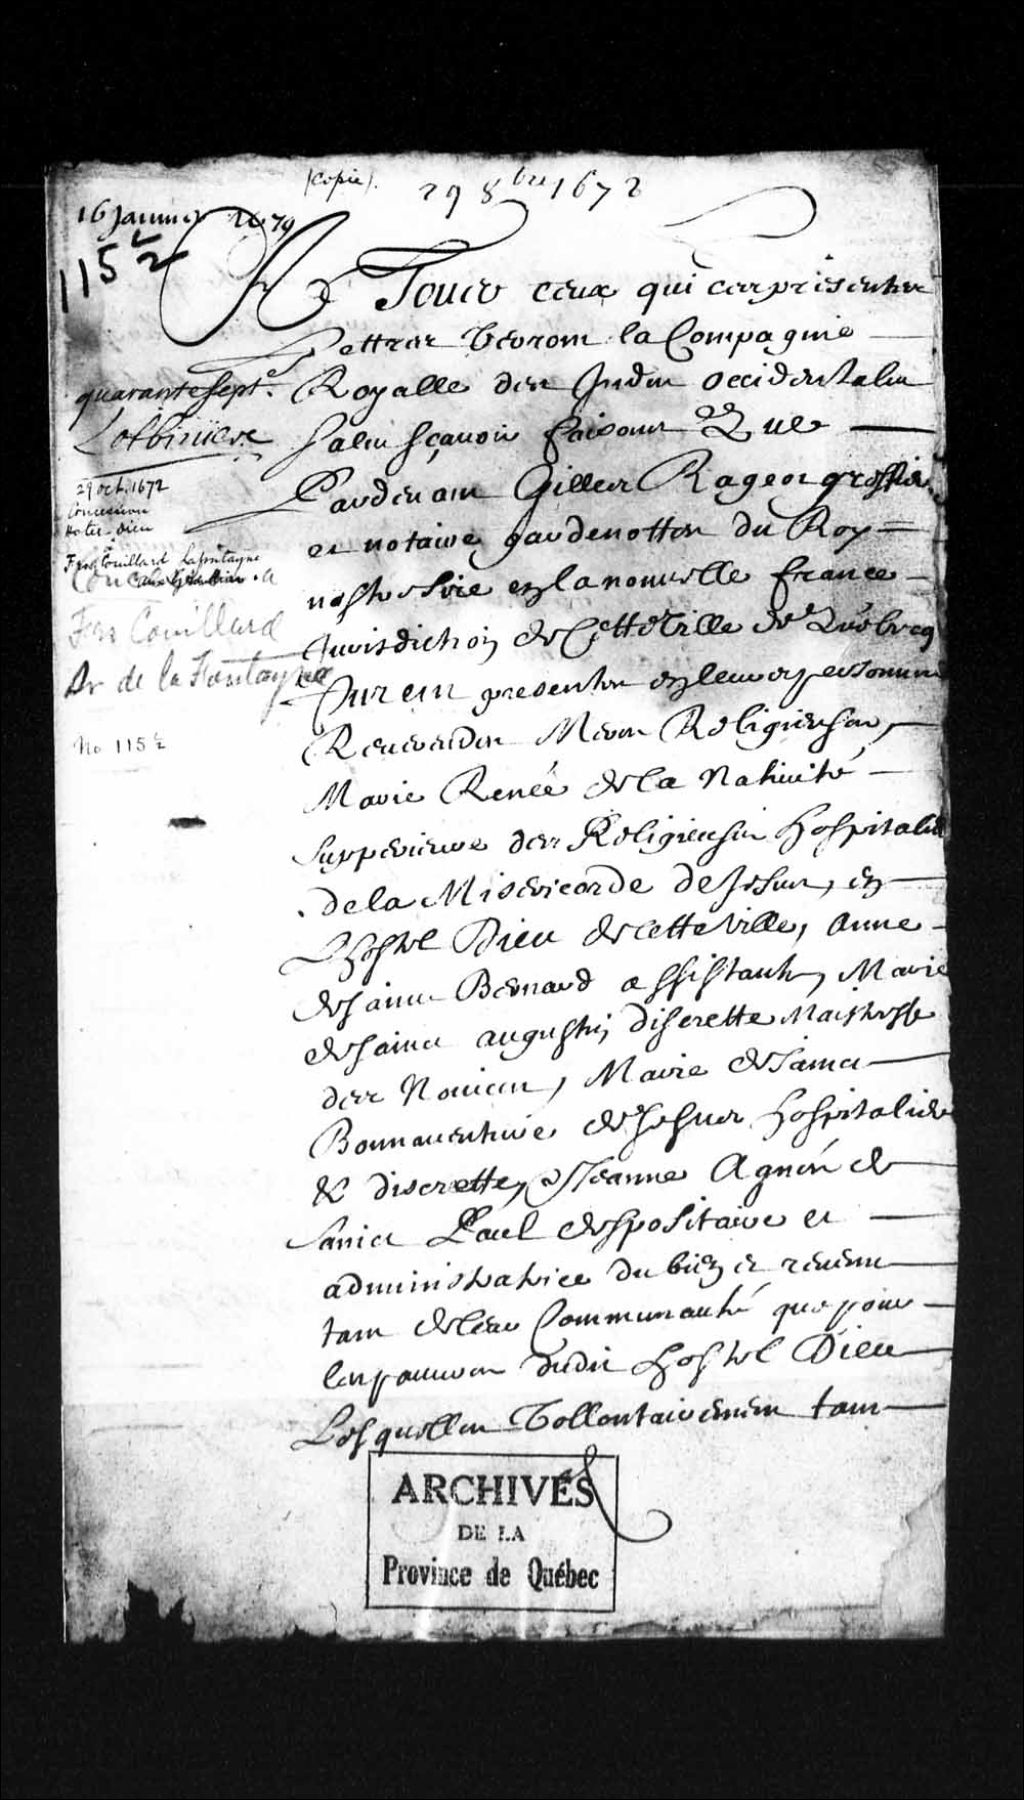 (Copie).
29 8bre 1672
16 Januier 1679
115 1/2
A Tous ceux qui ces presentes
Lettres Verront la Compagnie
quarante sept.e
Royalle des Indes occidentales
Lotbiniere
Salut sçauoir faisons Que
29 oct. 1672
Concession
Hotel-Dieu
à
Frs Couillard Lafontaine
Pardeuant Gilles Rageot greffier
et notaire gardenottes du Roy
nostre Sire en la nouuelle france
Frs Couillard
Sr de la Fontayne
Jurisdiction de Cette Ville de Quebecq
No 115 1/2
Furent presentes en leurs personnes
Reuerendes Meres Religieuses,
Marie Renée de la Natiuité
Supperieure des Religieuses Hospitalieres
de la Misericorde de Jesus, en
L'hostel Dieu de cette Ville, Anne
de Saint Bernard assistante, Marie
de Saint augustin discrette Maistresse
des Nouices, Marie de Saint
Bonnauenture de Jesus Hospitaliere
& discrette, & Jeanne Agnes de
Saint Paul depositaire et
administratrice du bien et reuenu
tant de leur Communauté que pour
les pauures dudit hostel Dieu
Lesquelles Vollontairement tant
ARCHIVES
DE LA
Province de Québec